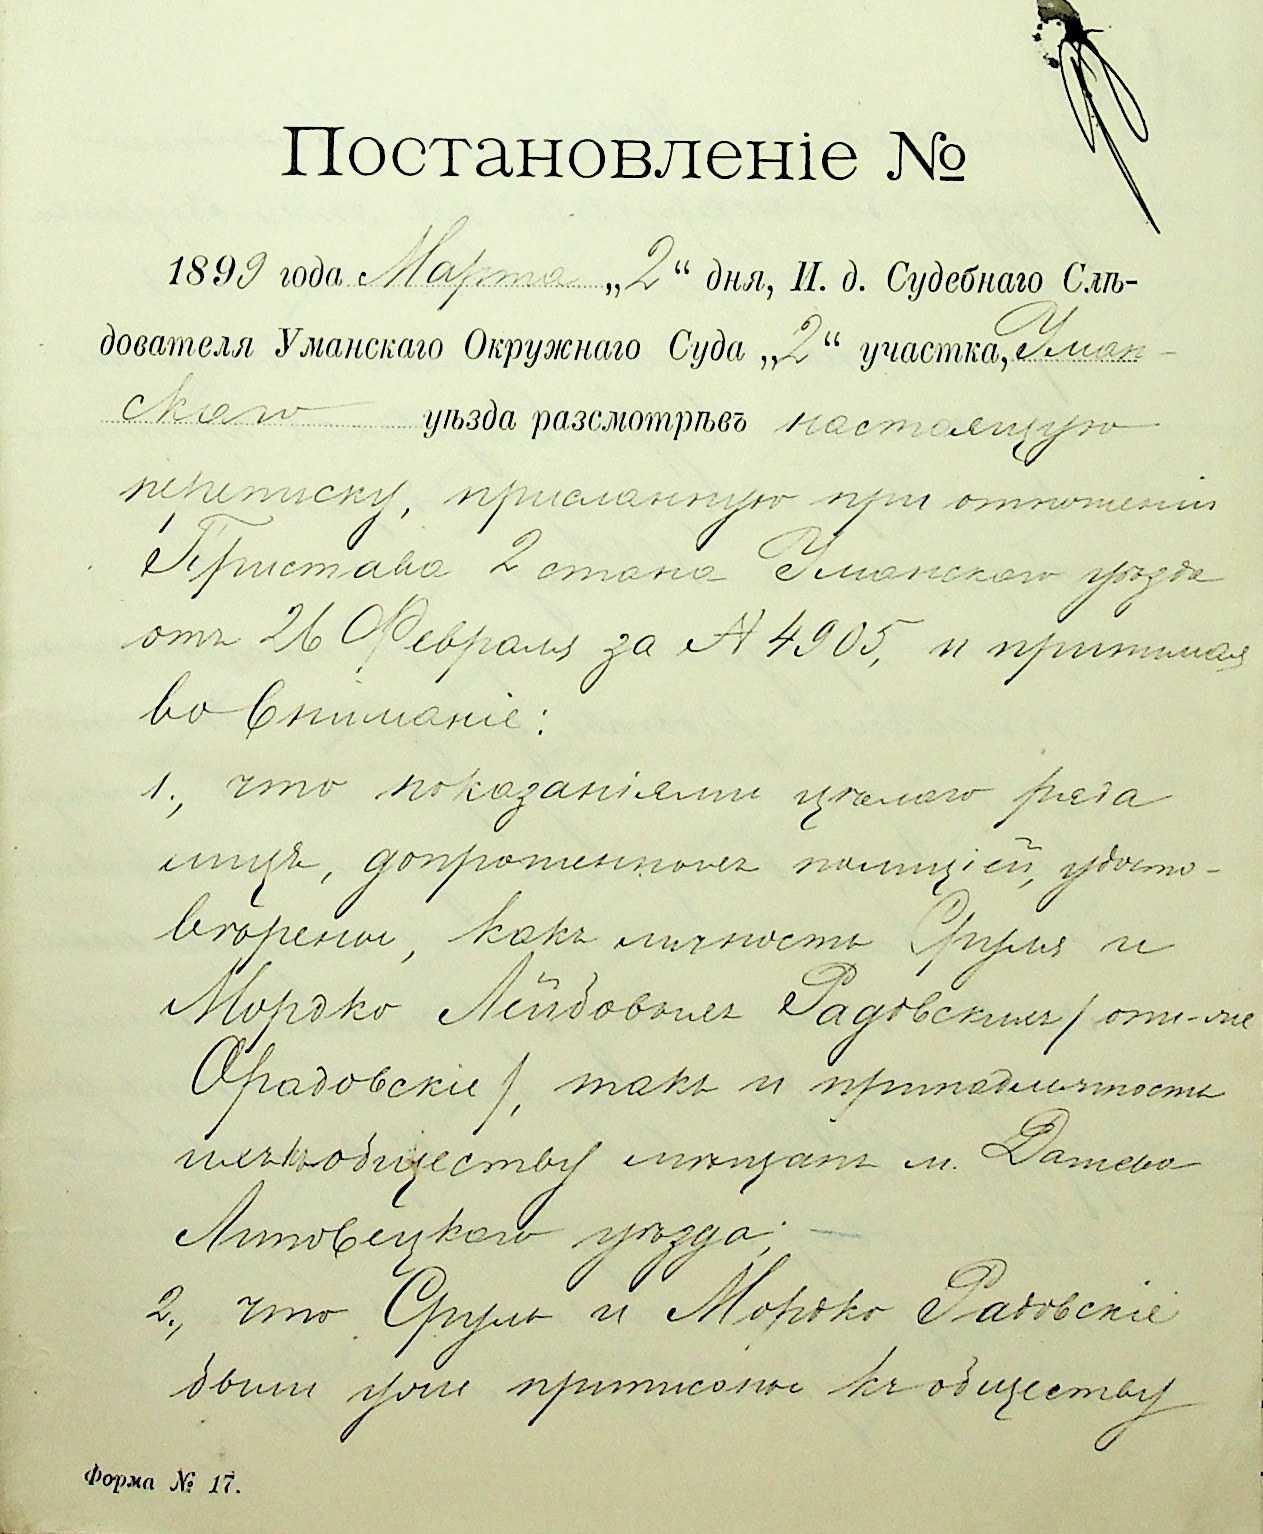 Постановленіе №
1899 года Марта „2“ дня, И. д. Судебнаго Слѣ-
дователя Уманскаго Окружнаго Суда „2“ участка, Уман-
скаго уѣзда разсмотрѣвъ настоящую
переписку, присланную при отношеніи
Пристава 2 стана Уманскаго уѣзда
отъ 26 Февраля за № 4905, и принимая
во вниманіе:
1., что показаніями цѣлаго ряда
лицъ, допрошенныхъ полиціей, удосто-
вѣрены, какъ личность Сруля и
Мордко Лейбовыхъ Радовскихъ /они-же
Орадовскіе/, такъ и принадлежность
ихъ къ обществу мѣщанъ м. Дашева
Липовецкаго уѣзда;
2., что Сруль и Мордко Радовскіе
были приписаны къ обществу
Форма № 17.